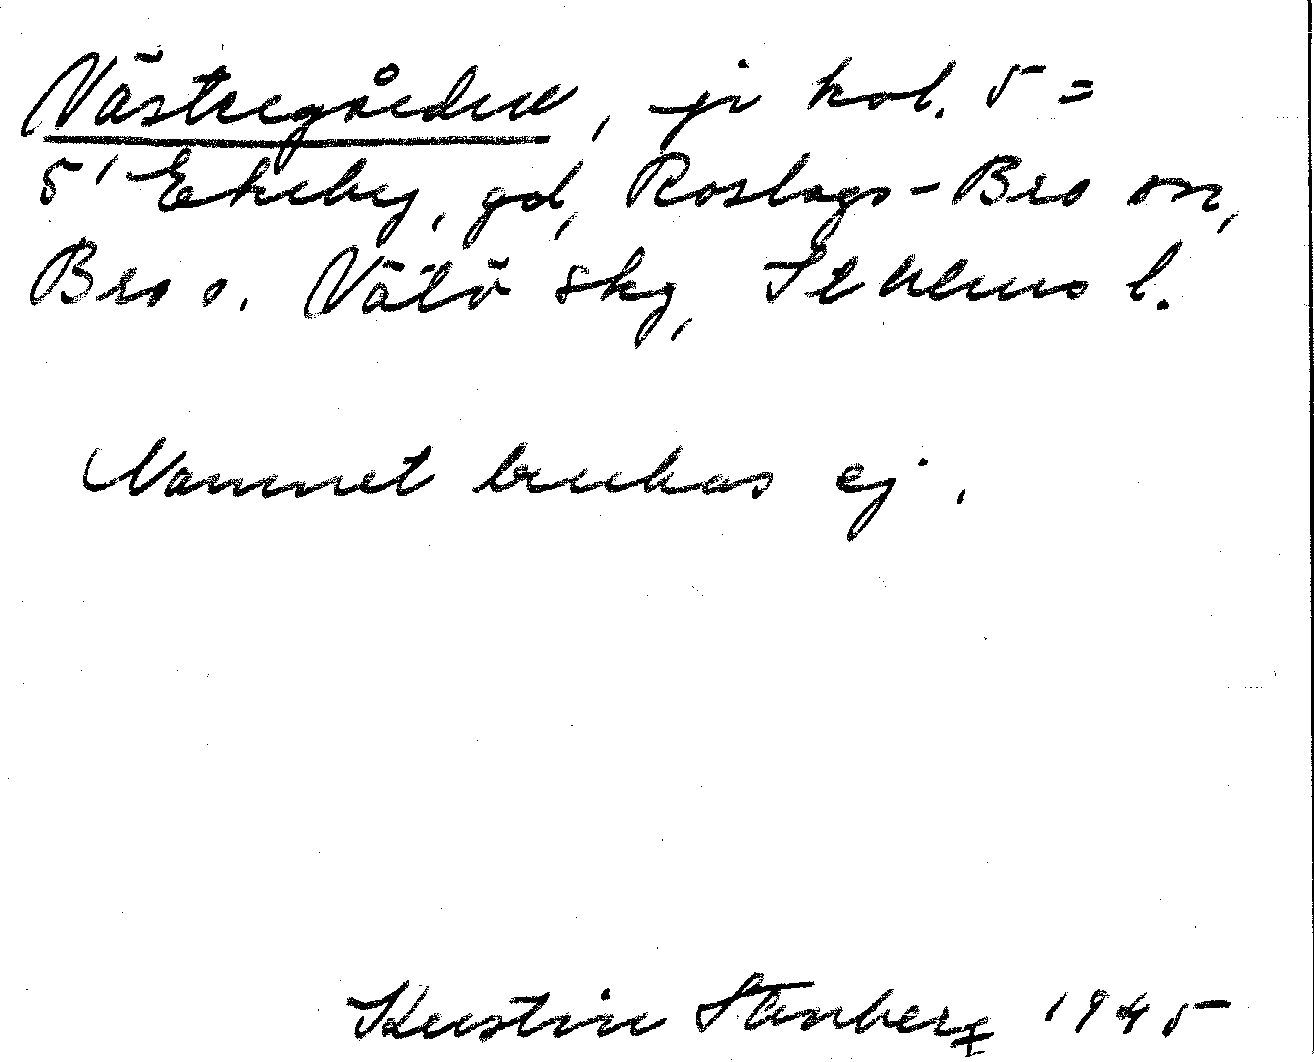 Västergården, jr kol. 5 =
5' Ekeby, gd, Roslags-Bro sn,
Bro o. Vätö skg, Sthlms l.
Namnet brukas ej.
Kerstin Stenberg 1945